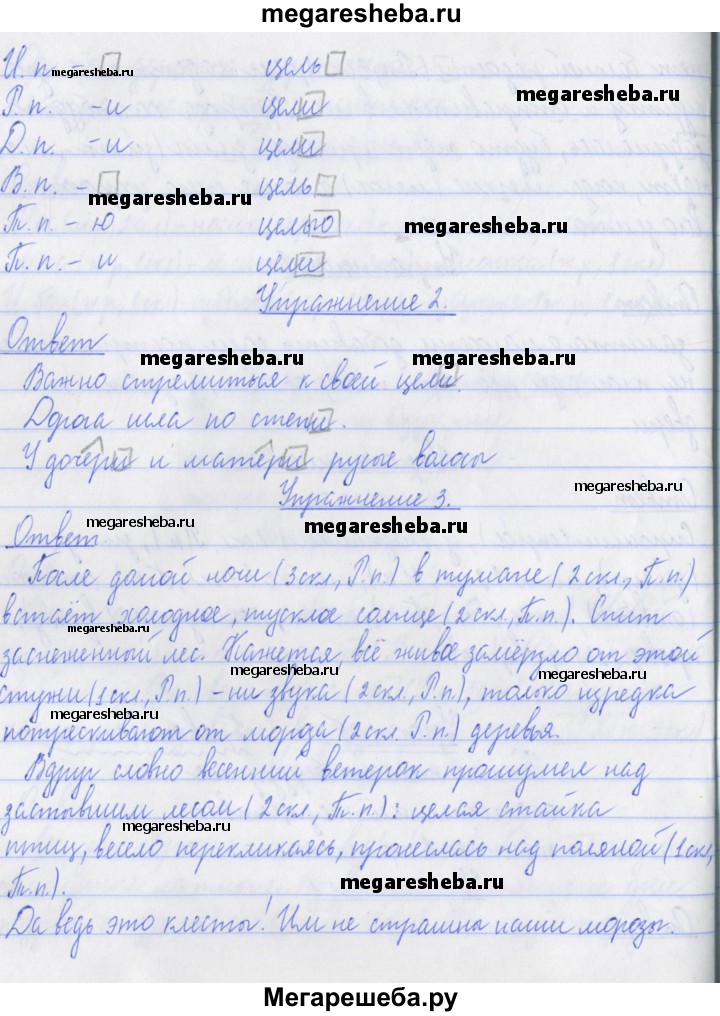 megaresheba.ru
И. п. – цель
megaresheba.ru
Р. п. – и цели
megaresheba.ru
Д. п. – и цели
В. п. – цель
megaresheba.ru
Т. п. – ю целью
megaresheba.ru
П. п. – и цели
Упражнение 2.
Ответ
megaresheba.ru megaresheba.ru
Важно стремиться к своей цели.
Дорога шла по степи.
У дочери и матери русые волосы
Упражнение 3.
megaresheba.ru
megaresheba.ru
megaresheba.ru
Ответ
После долгой ночи (3 скл, Р.п.) в тумане (2 скл, П.п.)
встаёт холодное, тусклое солнце (2 скл, П.п.). Спит
megaresheba.ru
заснеженный лес. Кажется всё живое замёрзло от этой
megaresheba.ru
стужи (1 скл., Р.п.) – ни звука (2 скл., Р.п.), только изредка
megaresheba.ru
megaresheba.ru
потрескивают от мороза (2 скл. Р.п.) деревья.
Вдруг словно весенний ветерок прошумел над
застывшим лесом (2 скл, Т.п.): целая стайка
megaresheba.ru
птиц, весело перекликаясь, пронеслась над поляной (1 скл,
Т.п.).
megaresheba.ru
Да ведь это клесты! Им не страшны наши морозы.
Мегарешеба.ру